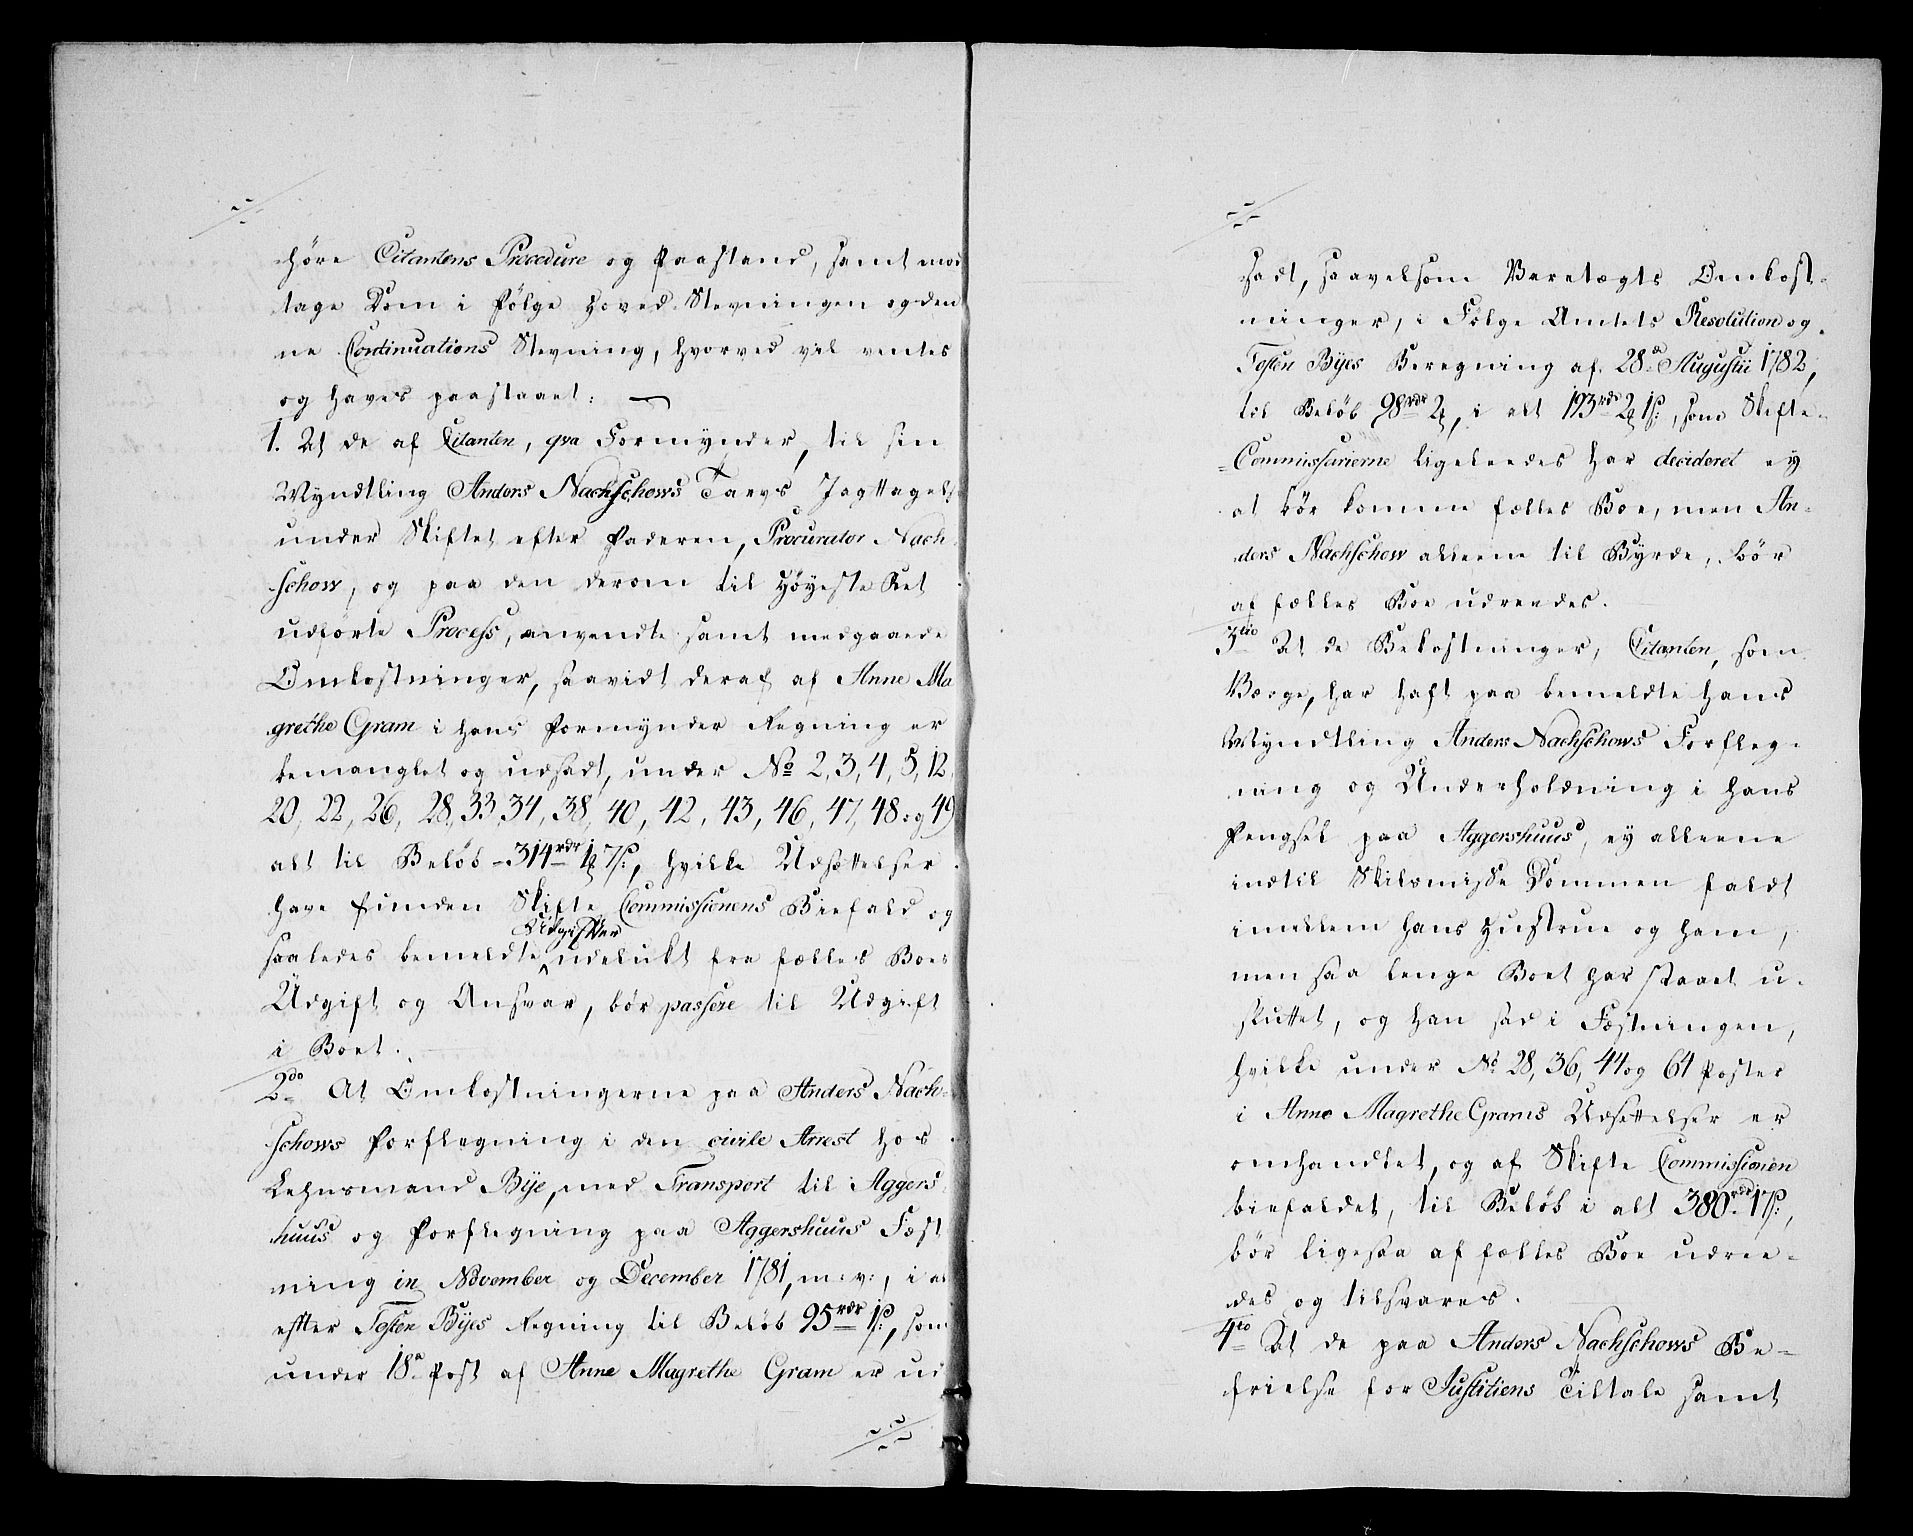 høre Citantens Procedure og Paastand, samt mod
tage Dom i Følge Hoved-Stevningen og den
ne Continuations Stevning, hvorved vil ventes
og haves paastaaet:
1. At de af Citanten, qva Formynder, til sin
Myndtling Anders Nachschows Tarvs Jagttagels
under Skiftet efter Faderen, Procurator Nach
schow, og paa den derom til Høyeste Ret
udførte Process, anvendte samt medgaaede
Omkostninger, saavidt deraf af Anne Ma
grethe Gram i hans Formynder Regning er
bemanglet og udsadt, under No 2, 3, 4, 5, 12,
20, 22, 26, 28, 33, 34, 38, 40, 42, 43, 46, 47, 48 og 49
alt til Beløb - 314 rdr 1 ₰ 7 ß:, hvilke Udsættelser
have funden Skifte Commissionens Biefald og
Udgifter
saaledes bemeldte udelukt fra fælles Boes
Udgift og Ansvar, bør passere til Udgift
i Boet.
2do At Omkostningerne paa Anders Nach-
schows Forflegning i den civile Arrest hos
Lehnsmand Bye, med Transport til Aggers
huus og Forflegning paa Aggershuus Fæst
ning in November og December 1781, m: v:, i al
efter Tosten Byes Regning til Beløb 95 rdr 1 ß:, som
under 18a Post af Anne Magrethe Gram er ud
sadt, saavelsom Varetægts Omkost-
ninger, i Følge Amtets Resolution og
Tosten Byes Beregning af 28de Augustii 1782,
til Beløb 98 rdr 2 ₰, i alt 193 rdr 2 ₰ 1 ß:, som Skifte-
Commissarierne ligeleedes har decideret ey
at bør komme fælles Boe, men An-
ders Nachschow alleene til Byrde, bør
af fælles Boe udreedes.
3tio At de Bekostninger, Citanten, som
Værge, har haft paa bemeldte hans
Myndtling Anders Nachschows Forfleg-
ning og Underholdning i hans
Fengsel paa Aggershuus, ey alleene
indtil Skilsmisse Dommen faldt
imellem hans Hustrue og ham,
men saa lenge Boet har staaet u-
skiftet, og han sad i Fæstningen,
hvilke under No 28, 36, 44 og 64 Poster
i Anne Magrethe Grams Udsettelser er
omhandlet, og af Skifte Commissionen
biefaldet, til Beløb i alt 380 rdr 17 ß:,
bør ligesaa af fælles Boe udree-
des og tilsvares.
4to At de paa Anders Nachschows Be-
frielse for Justitiens Tiltale samt